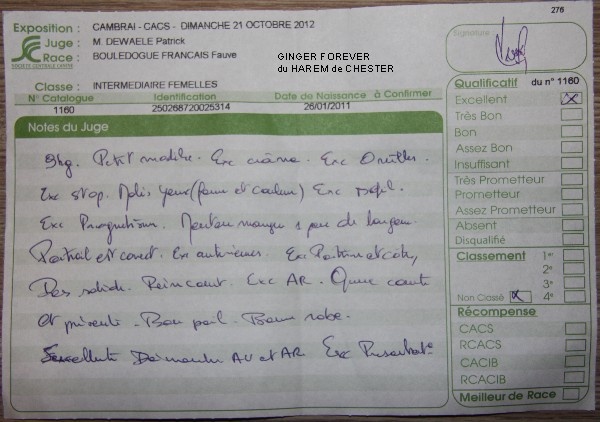 276
Exposition : CAMBRAI - CACS - DIMANCHE 21 OCTOBRE 2012
Juge : M. DEWAELE Patrick
Race : BOULEDOGUE FRANCAIS Fauve
SOCIÉTÉ CENTRALE CANINE
GINGER FOREVER
du HAREM de CHESTER
Classe : INTERMEDIAIRE FEMELLES
N° Catalogue Identification Date de Naissance à Confirmer
1160 250268720025314 26/01/2011
Notes du Juge
9kg. Petit modèle. Exc crâne. Exc Oreilles.
Exc stop. Jolis yeux (forme et couleur) Exc
Exc Prognathisme. Menton manque 1 peu de largeur
Poitrail est correct. Exc antérieurs. Exc Poitrine et côtes,
Dos solide. Rein court. Exc AR. Queue courte
et présente. Bon poil. Bonne robe.
Excellente Démarche AV et AR Exc Présentat°
Signature
Qualificatif du n° 1160
Excellent X
Très Bon
Bon
Assez Bon
Insuffisant
Très Prometteur
Prometteur
Assez Prometteur
Absent
Disqualifié
Classement 1er
2e
3e
Non Classé X 4e
Récompense
CACS
RCACS
CACIB
RCACIB
Meilleur de Race